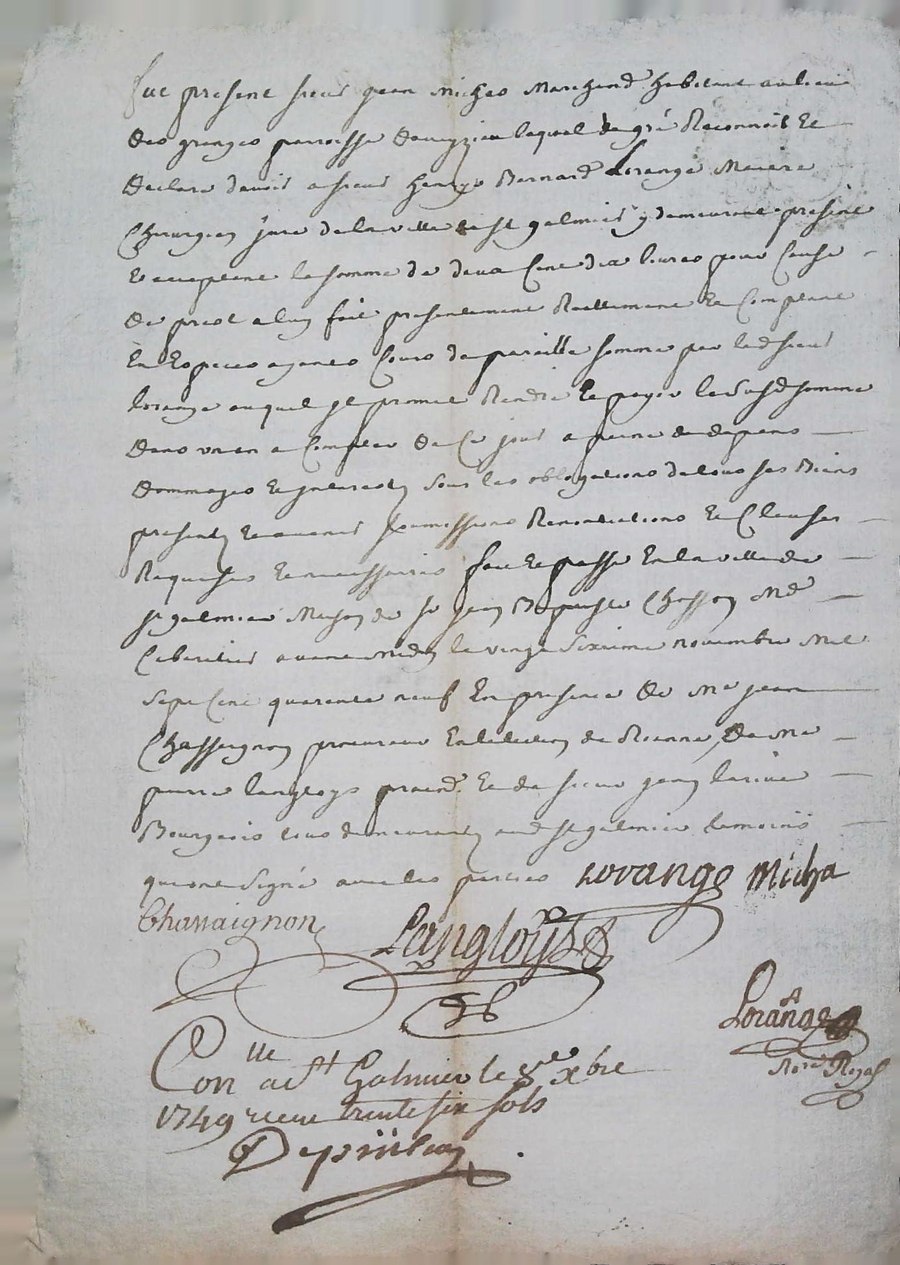 fut present sieur jean micha Marchand habitant au lieu
des granges parroisse daveyzieu lequel de gré Reconnoit Et
Declare devoir a sieur henry Bernard Lorange Maitre
Chirurgien juré de la ville de st galmier y demeurant present
Et acceptant la somme de deux Cent dix livres pour Cause
De prest a luy fait presentement Reellement Et Comptant
En Especes ayants Cours de pareille somme par led sieur
lorange auquel jl promet Rendre Et payer lad susd somme
Dans un an a Compter de Ce jour a peine de depens
Dommages Et jnterests sous les obligations de tous ses Biens
presents Et avenir soumissions Renontiations Et Clauses
Requises Et necessaires fait Et passé En la ville de
st galmier Maison de sr jean Baptiste Chasson Md
Cabaretier avant midy le vingt sixieme novembre mil
sept Cent quarante neuf En presence de Me jean
Chassaignon procureur En lelection de Roanne, de Me
pierre langloys praed. Et de sieur jean larive
Bourgeois tous demeurants aud st galmier temoins
qui ont signé avec les parties Lorange Micha
Chassaignon
Langloÿs
Lorange
Nore Royal
Conlle a St Galmier le xbre
1749 receu trente six sols